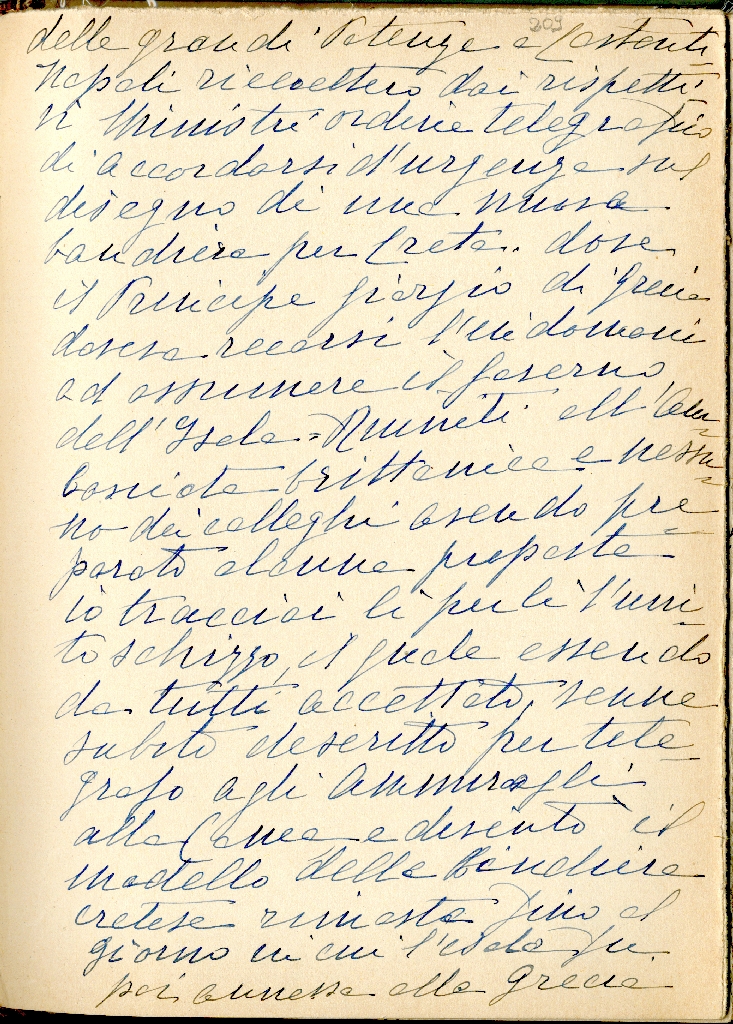 209
delle grandi Potenze a Costanti-
nopoli riccevettero dai rispetti-
vi Ministri ordine telegrafico
di accordarsi d'urgenza sul
disegno di una nuova
bandiera per Creta.. dove
il Principe Giorgio di Grecia
doveva recarsi l'indomani
ad assumere il governo
dell'Isola = Riuniti all'Am-
basciata brittanica e nessu-
no dei colleghi avendo pre-
parato alcuna proposta
io tracciai lì per lì l'uni-
to schizzo, il quale essendo
da tutti accettato, venne
subito descritto per tele-
grafo agli Ammiragli
alla Canea e diventò il
modello della bandiera
cretese rimasta fino al
giorno in cui l'isola fu
poi annessa alla Grecia